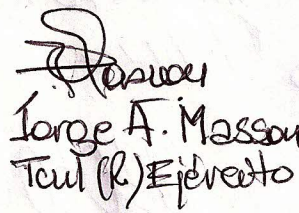 Jorge A. Masson
Tcnl (R) Ejército